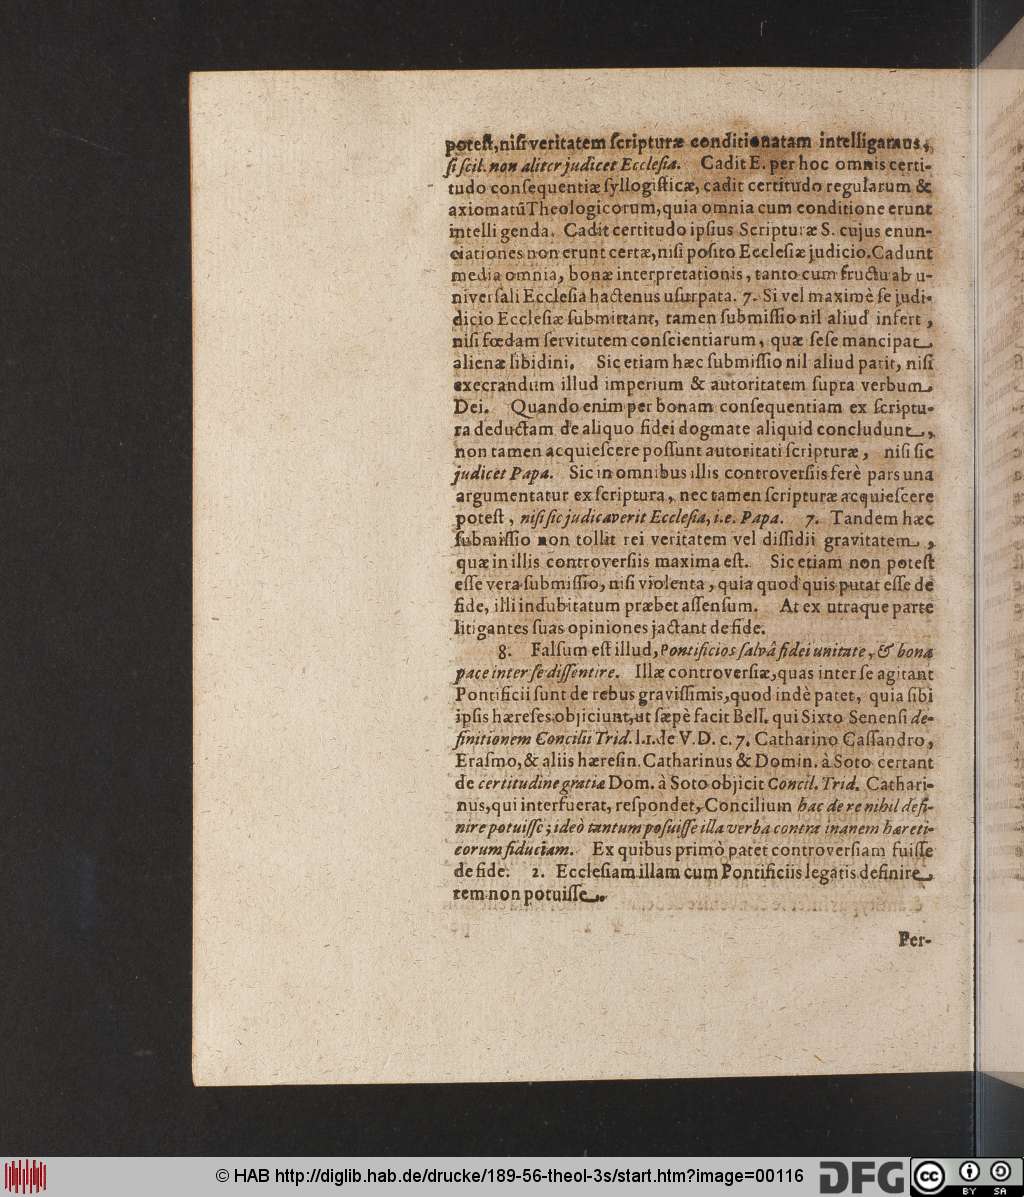 poteſt, niſi veritatem ſcripturæ conditionatam intelligamus,
ſi ſcil. non aliter judicet Eccleſia. Cadit E. per hoc omnis certi-
tudo conſequentiæ ſyllogiſticæ, cadit certitudo regularum &
axiomatũ Theologicorum, quia omnia cum conditione erunt
intelligenda. Cadit certitudo ipſius Scripturæ S. cujus enun-
ciationes non erunt certæ, niſi poſito Eccleſiæ judicio. Cadunt
media omnia, bonæ interpretationis, tanto cum fructu ab u-
niverſali Eccleſia hactenus uſurpata. 7. Si vel maximè ſe judi-
dicio Eccleſiæ ſubmittant, tamen ſubmiſſio nil aliud infert,
niſi fœdam ſervitutem conſcientiarum, quæ ſeſe mancipat
alienæ libidini. Sic etiam hæc ſubmiſſio nil aliud parit, niſi
execrandum illud imperium & autoritatem ſupra verbum
Dei. Quando enim per bonam conſequentiam ex ſcriptu-
ra deductam de aliquo fidei dogmate aliquid concludunt,
non tamen acquieſcere poſſunt autoritati ſcripturæ, niſi ſic
judicet Papa. Sic in omnibus illis controverſiis ferè pars una
argumentatur ex ſcriptura, nec tamen ſcripturæ acquieſcere
poteſt, niſi ſic judicaverit Eccleſia, i.e. Papa. 7. Tandem hæc
ſubmiſſio non tollit rei veritatem vel diſſidii gravitatem,
quæ in illis controverſiis maxima eſt. Sic etiam non poteſt
eſſe vera ſubmiſſio, niſi violenta, quia quod quis putat eſſe de
fide, illi indubitatum præbet aſſenſum. At ex utraque parte
litigantes ſuas opiniones jactant de fide.
8. Falſum eſt illud, Pontificios ſalvâ fidei unitate, & bona
pace inter ſe diſſentire. Illæ controverſiæ, quas inter ſe agitant
Pontificii ſunt de rebus graviſſimis, quod indè patet, quia ſibi
ipſis hæreſes objiciunt, ut ſæpè facit Bell. qui Sixto Senenſi de-
finitionem Concilii Trid. l.1. de V. D. c. 7. Catharino Caſſandro,
Eraſmo, & aliis hæreſin. Catharinus & Domin. à Soto certant
de certitudine gratiæ Dom. à Soto objicit Concil. Trid. Cathari-
nus, qui interfuerat, reſpondet, Concilium hac de re nihil defi-
nire potuiſſe; ideò tantum poſuiſſe illa verba contra inanem hæreti-
corum fiduciam. Ex quibus primò patet controverſiam fuiſſe
de fide. 2. Eccleſiam illam cum Pontificiis legatis definire
rem non potuiſſe.
Per-
© HAB http://diglib.hab.de/drucke/189-56-theol-3s/start.htm?image=00116
DFG
cc
BY SA